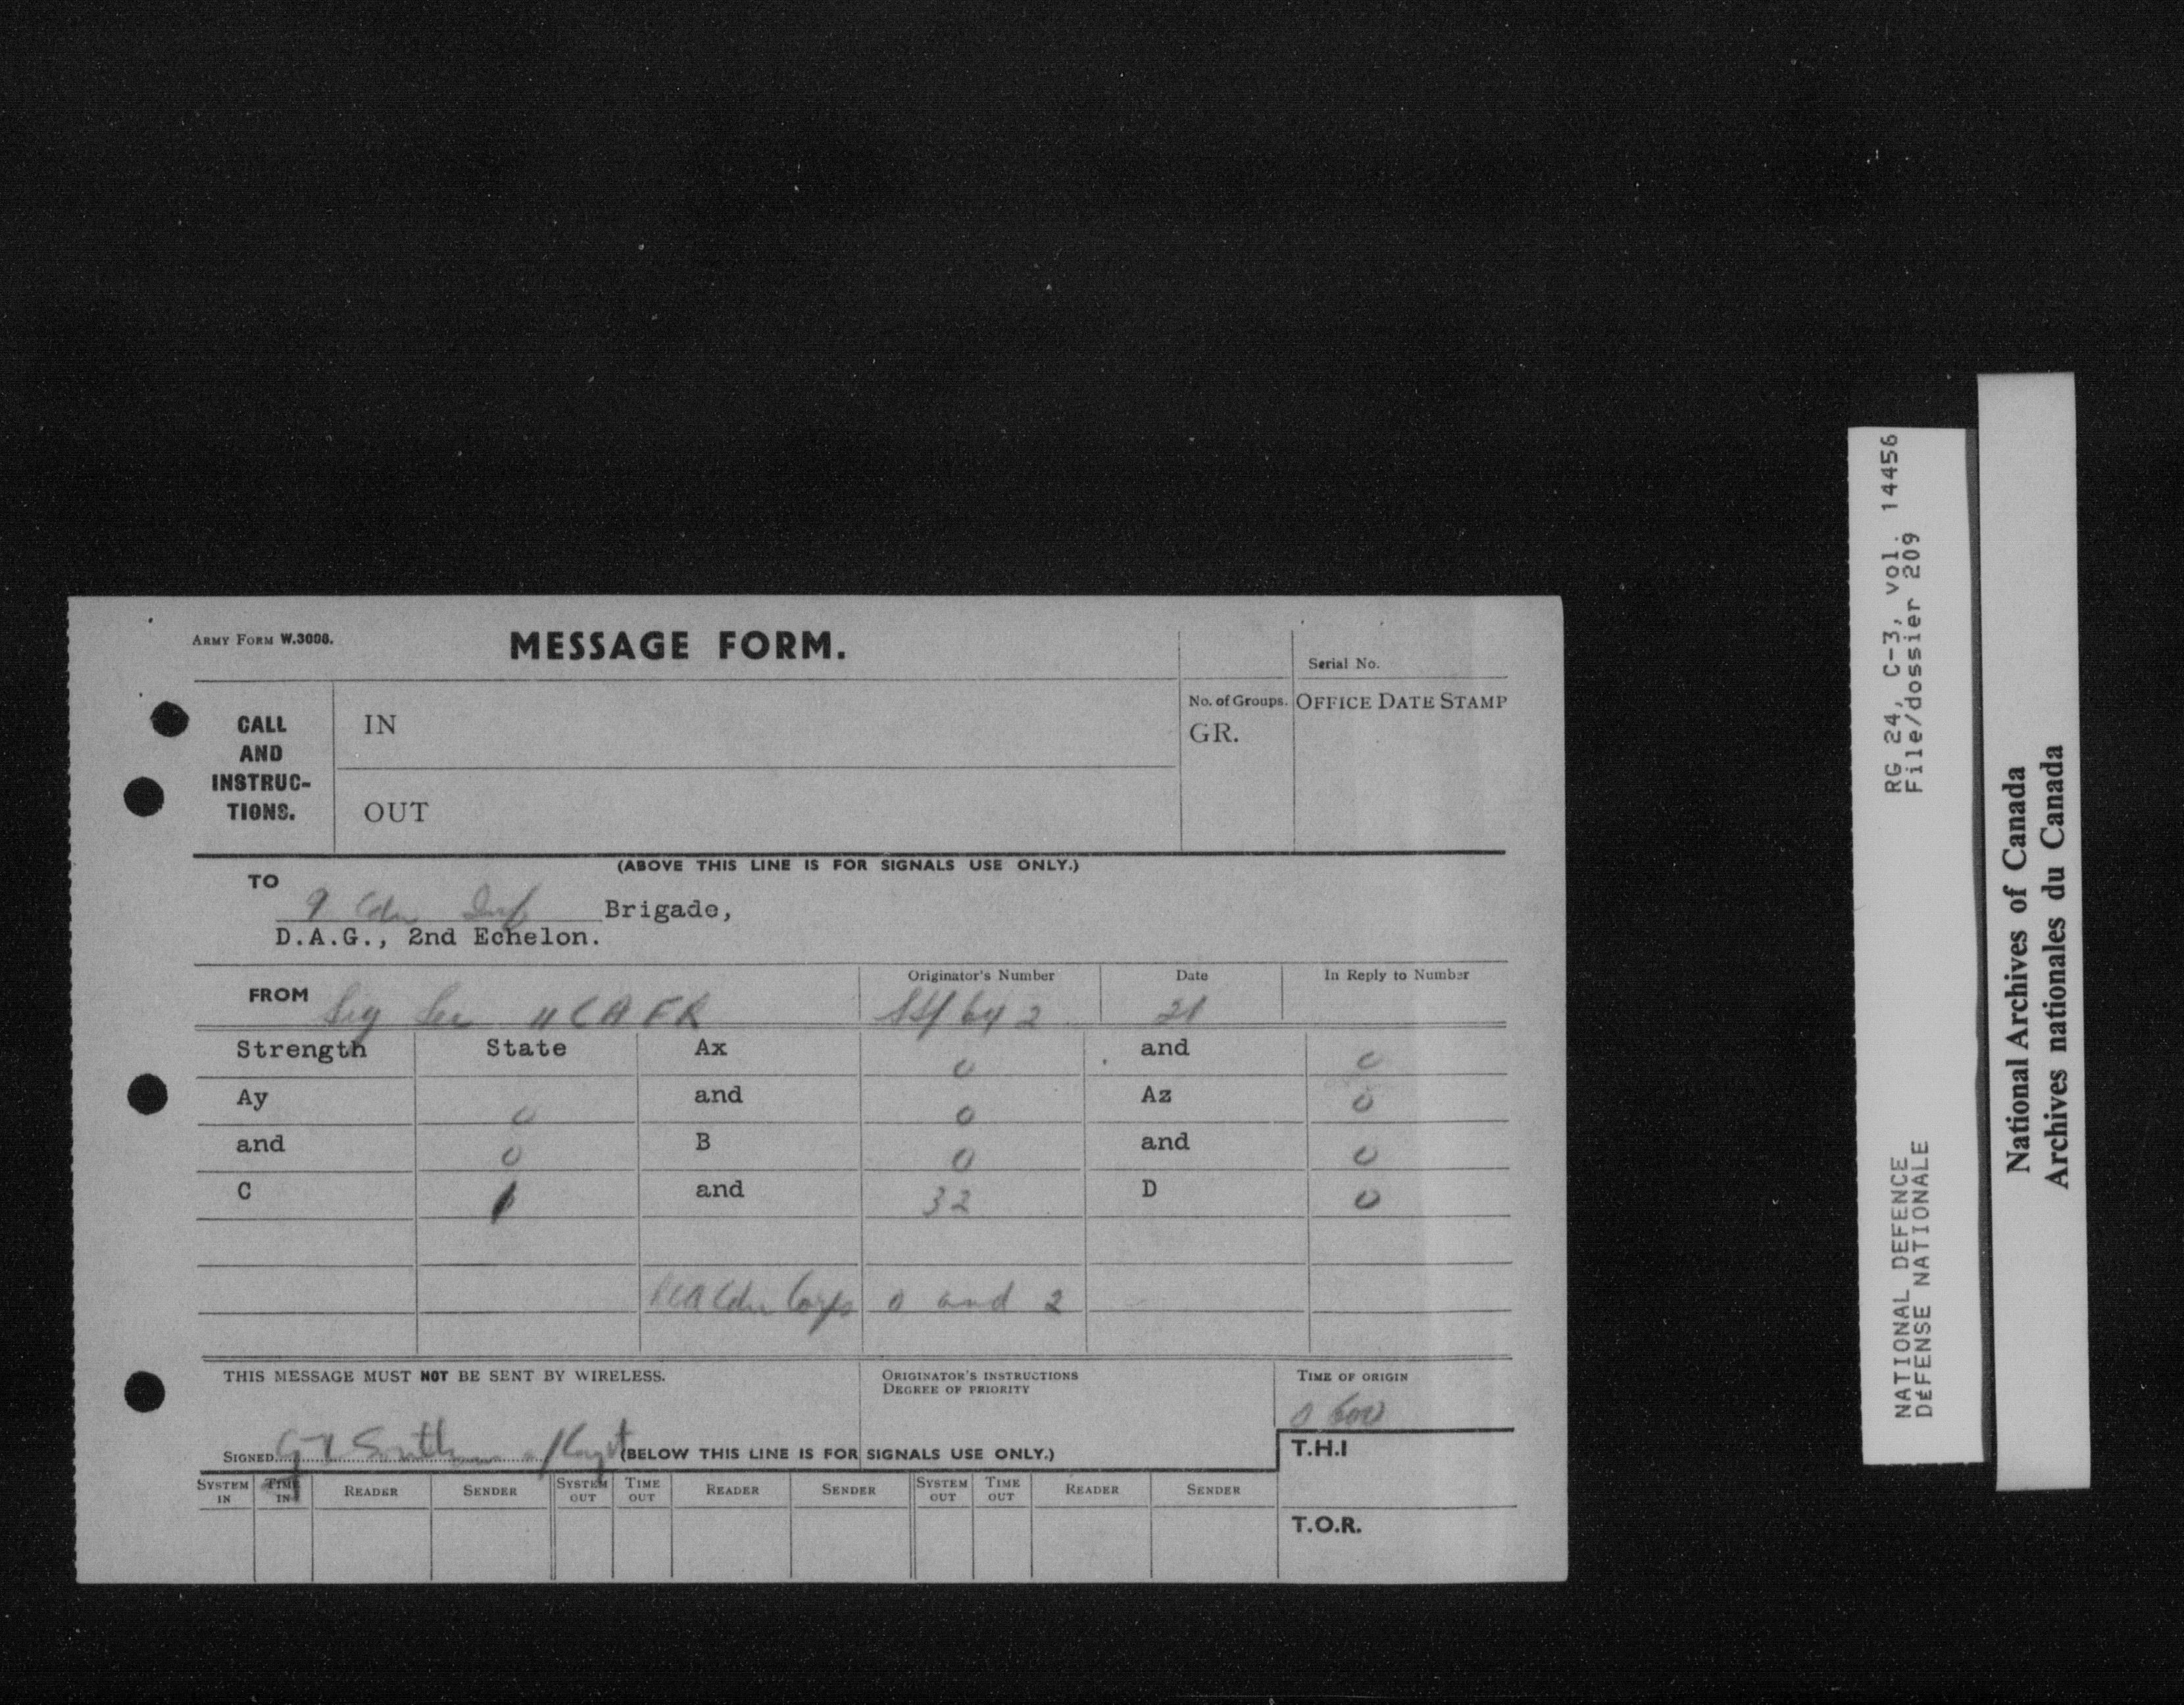 ARMY FORM W.3008.
MESSAGE FORM.
Serial No.
CALL AND INSTRUC-TIONS.
IN
OUT
No. of Groups.
GR.
OFFICE DATE STAMP
(ABOVE THIS LINE IS FOR SIGNALS USE ONLY.)
TO
9 Cdn Inf Brigade,
D.A.G., 2nd Echelon.
FROM Sig Sec
Originator's Number
642
Date
21
In Reply to Number
Strength State Ax 0 and 0
Ay 0 and 0 Az 0
and 0 B 0 and 0
C 1 and 32 D 0
Cdn Corps 0 and 2
THIS MESSAGE MUST NOT BE SENT BY WIRELESS.
ORIGINATOR'S INSTRUCTIONS
DEGREE OF PRIORITY
TIME OF ORIGIN
0600
SIGNED a/Capt
(BELOW THIS LINE IS FOR SIGNALS USE ONLY.)
T.H.I
SYSTEM IN TIME IN READER SENDER SYSTEM OUT TIME OUT READER SENDER SYSTEM OUT TIME OUT READER SENDER
T.O.R.
NATIONAL DEFENCE RG 24, C-3, vol. 14456
DÉFENSE NATIONALE File/dossier 209
National Archives of Canada
Archives nationales du Canada